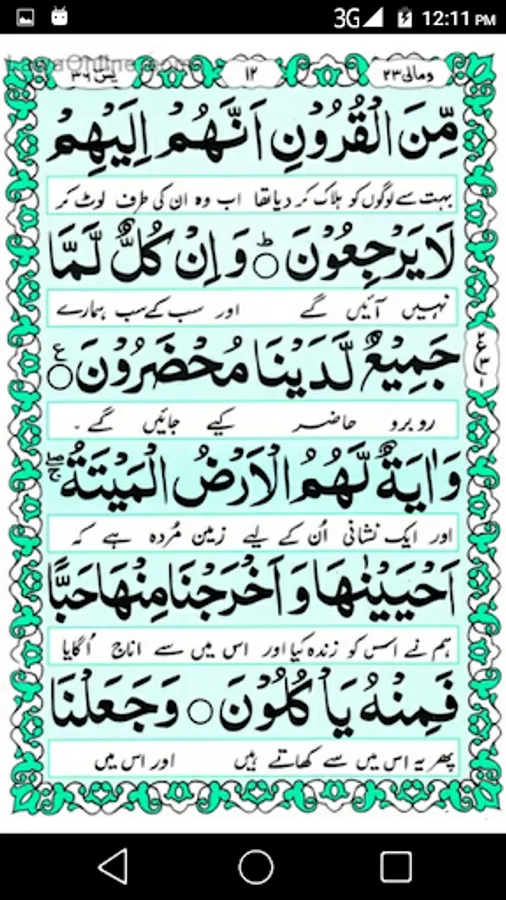 3G 12:11 PM
LamaOnline.com
ومالی ۲۳ ۱۲ یٰس ۳۶
مِّنَ الْقُرُوْنِ اَنَّهُمْ اِلَيْهِمْ
بہت سے لوگوں کو ہلاک کر دیا تھا اب وہ ان کی طرف لوٹ کر
لَا يَرْجِعُوْنَ ○ؕ وَ اِنْ كُلٌّ لَّمَّا
نہیں آئیں گے اور سب کے سب ہمارے
جَمِيْعٌ لَّدَيْنَا مُحْضَرُوْنَ ○ۧ
رو برو حاضر کیے جائیں گے۔
وَ اٰيَةٌ لَّهُمُ الْاَرْضُ الْمَيْتَةُ
اور ایک نشانی اُن کے لیے زمین مُردہ ہے کہ
اَحْيَيْنٰهَا وَ اَخْرَجْنَا مِنْهَا حَبًّا
ہم نے اس کو زندہ کیا اور اس میں سے اناج اُگایا
فَمِنْهُ يَاْكُلُوْنَ ○ وَ جَعَلْنَا
پھر یہ اس میں سے کھاتے ہیں اور اس میں